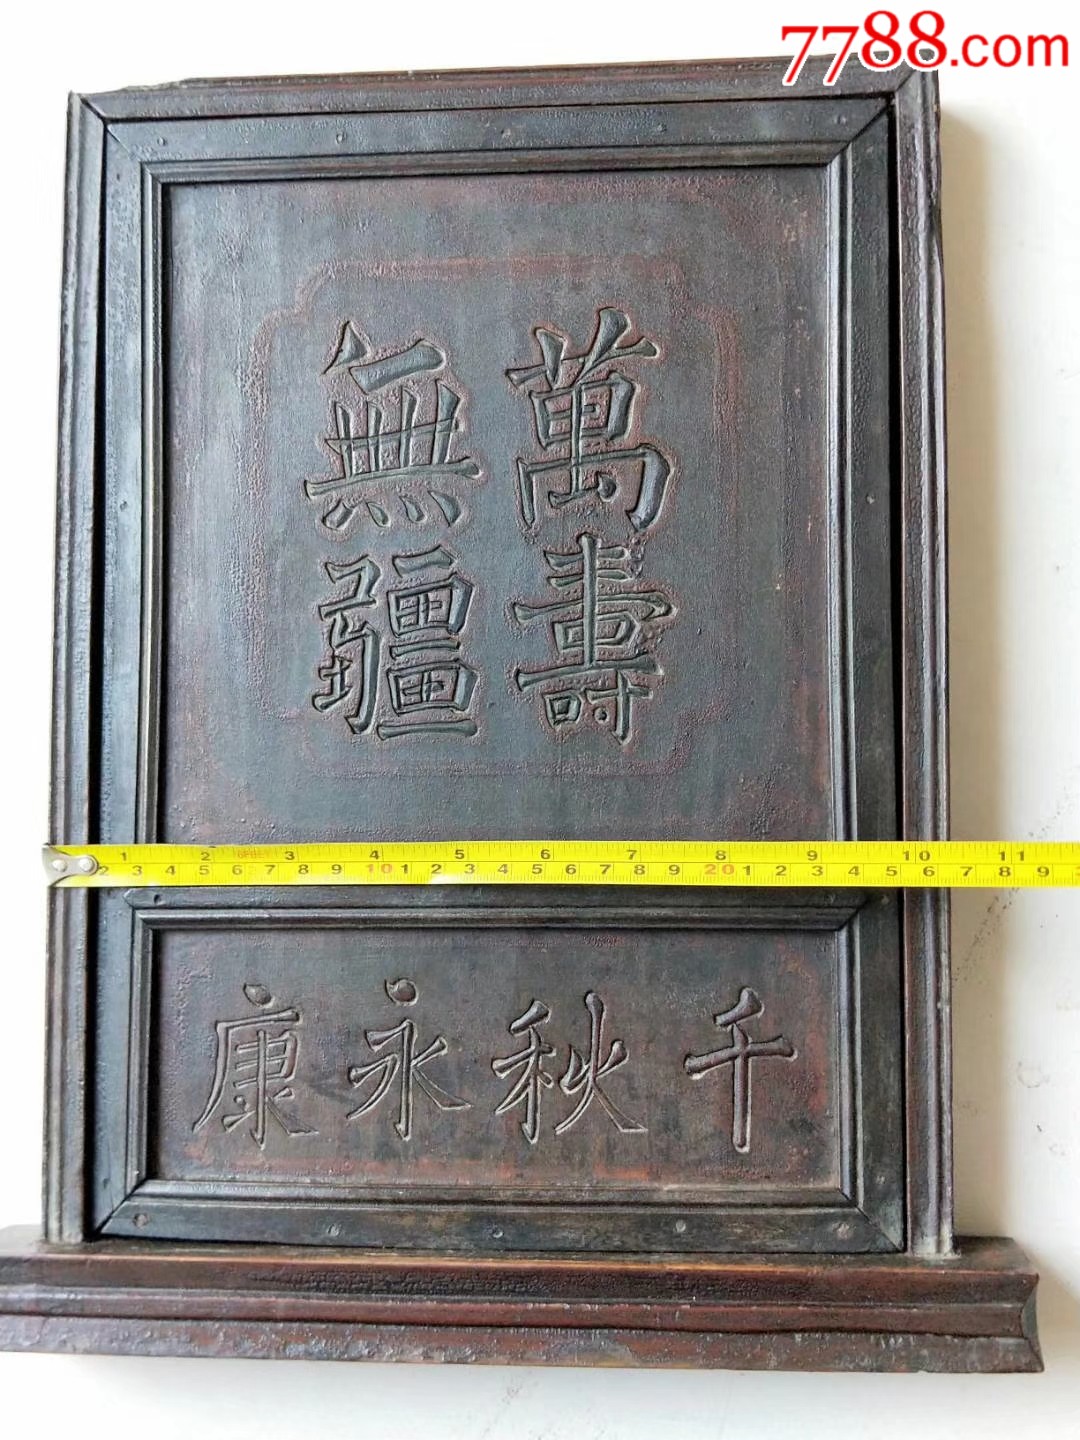 7788.com
萬壽
無疆
1 2 3 4 5 6 7 8 9 10 11
2 3 4 5 6 7 8 9 10 1 2 3 4 5 6 7 8 9 20 1 2 3 4 5 6 7 8 9
千秋永康